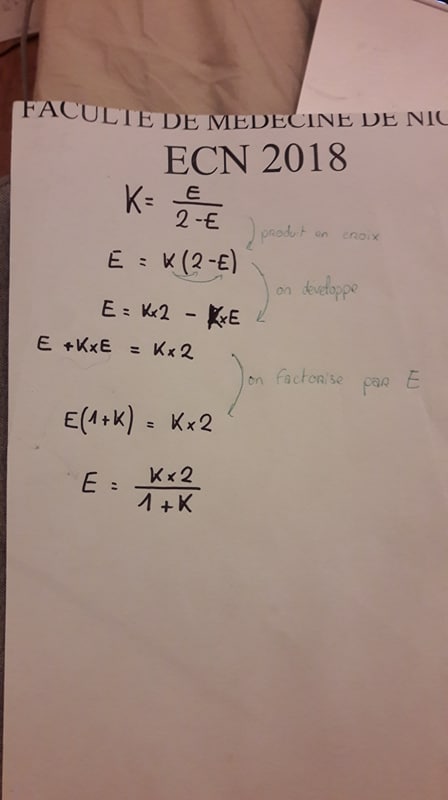 FACULTE DE MEDECINE DE NIC
ECN 2018
K = E / 2-E
produit en croix
E = K(2-E)
on développe
E = K×2 - K×E
E + K×E = K×2
on factorise par E
E(1+K) = K×2
E = K×2 / 1+K